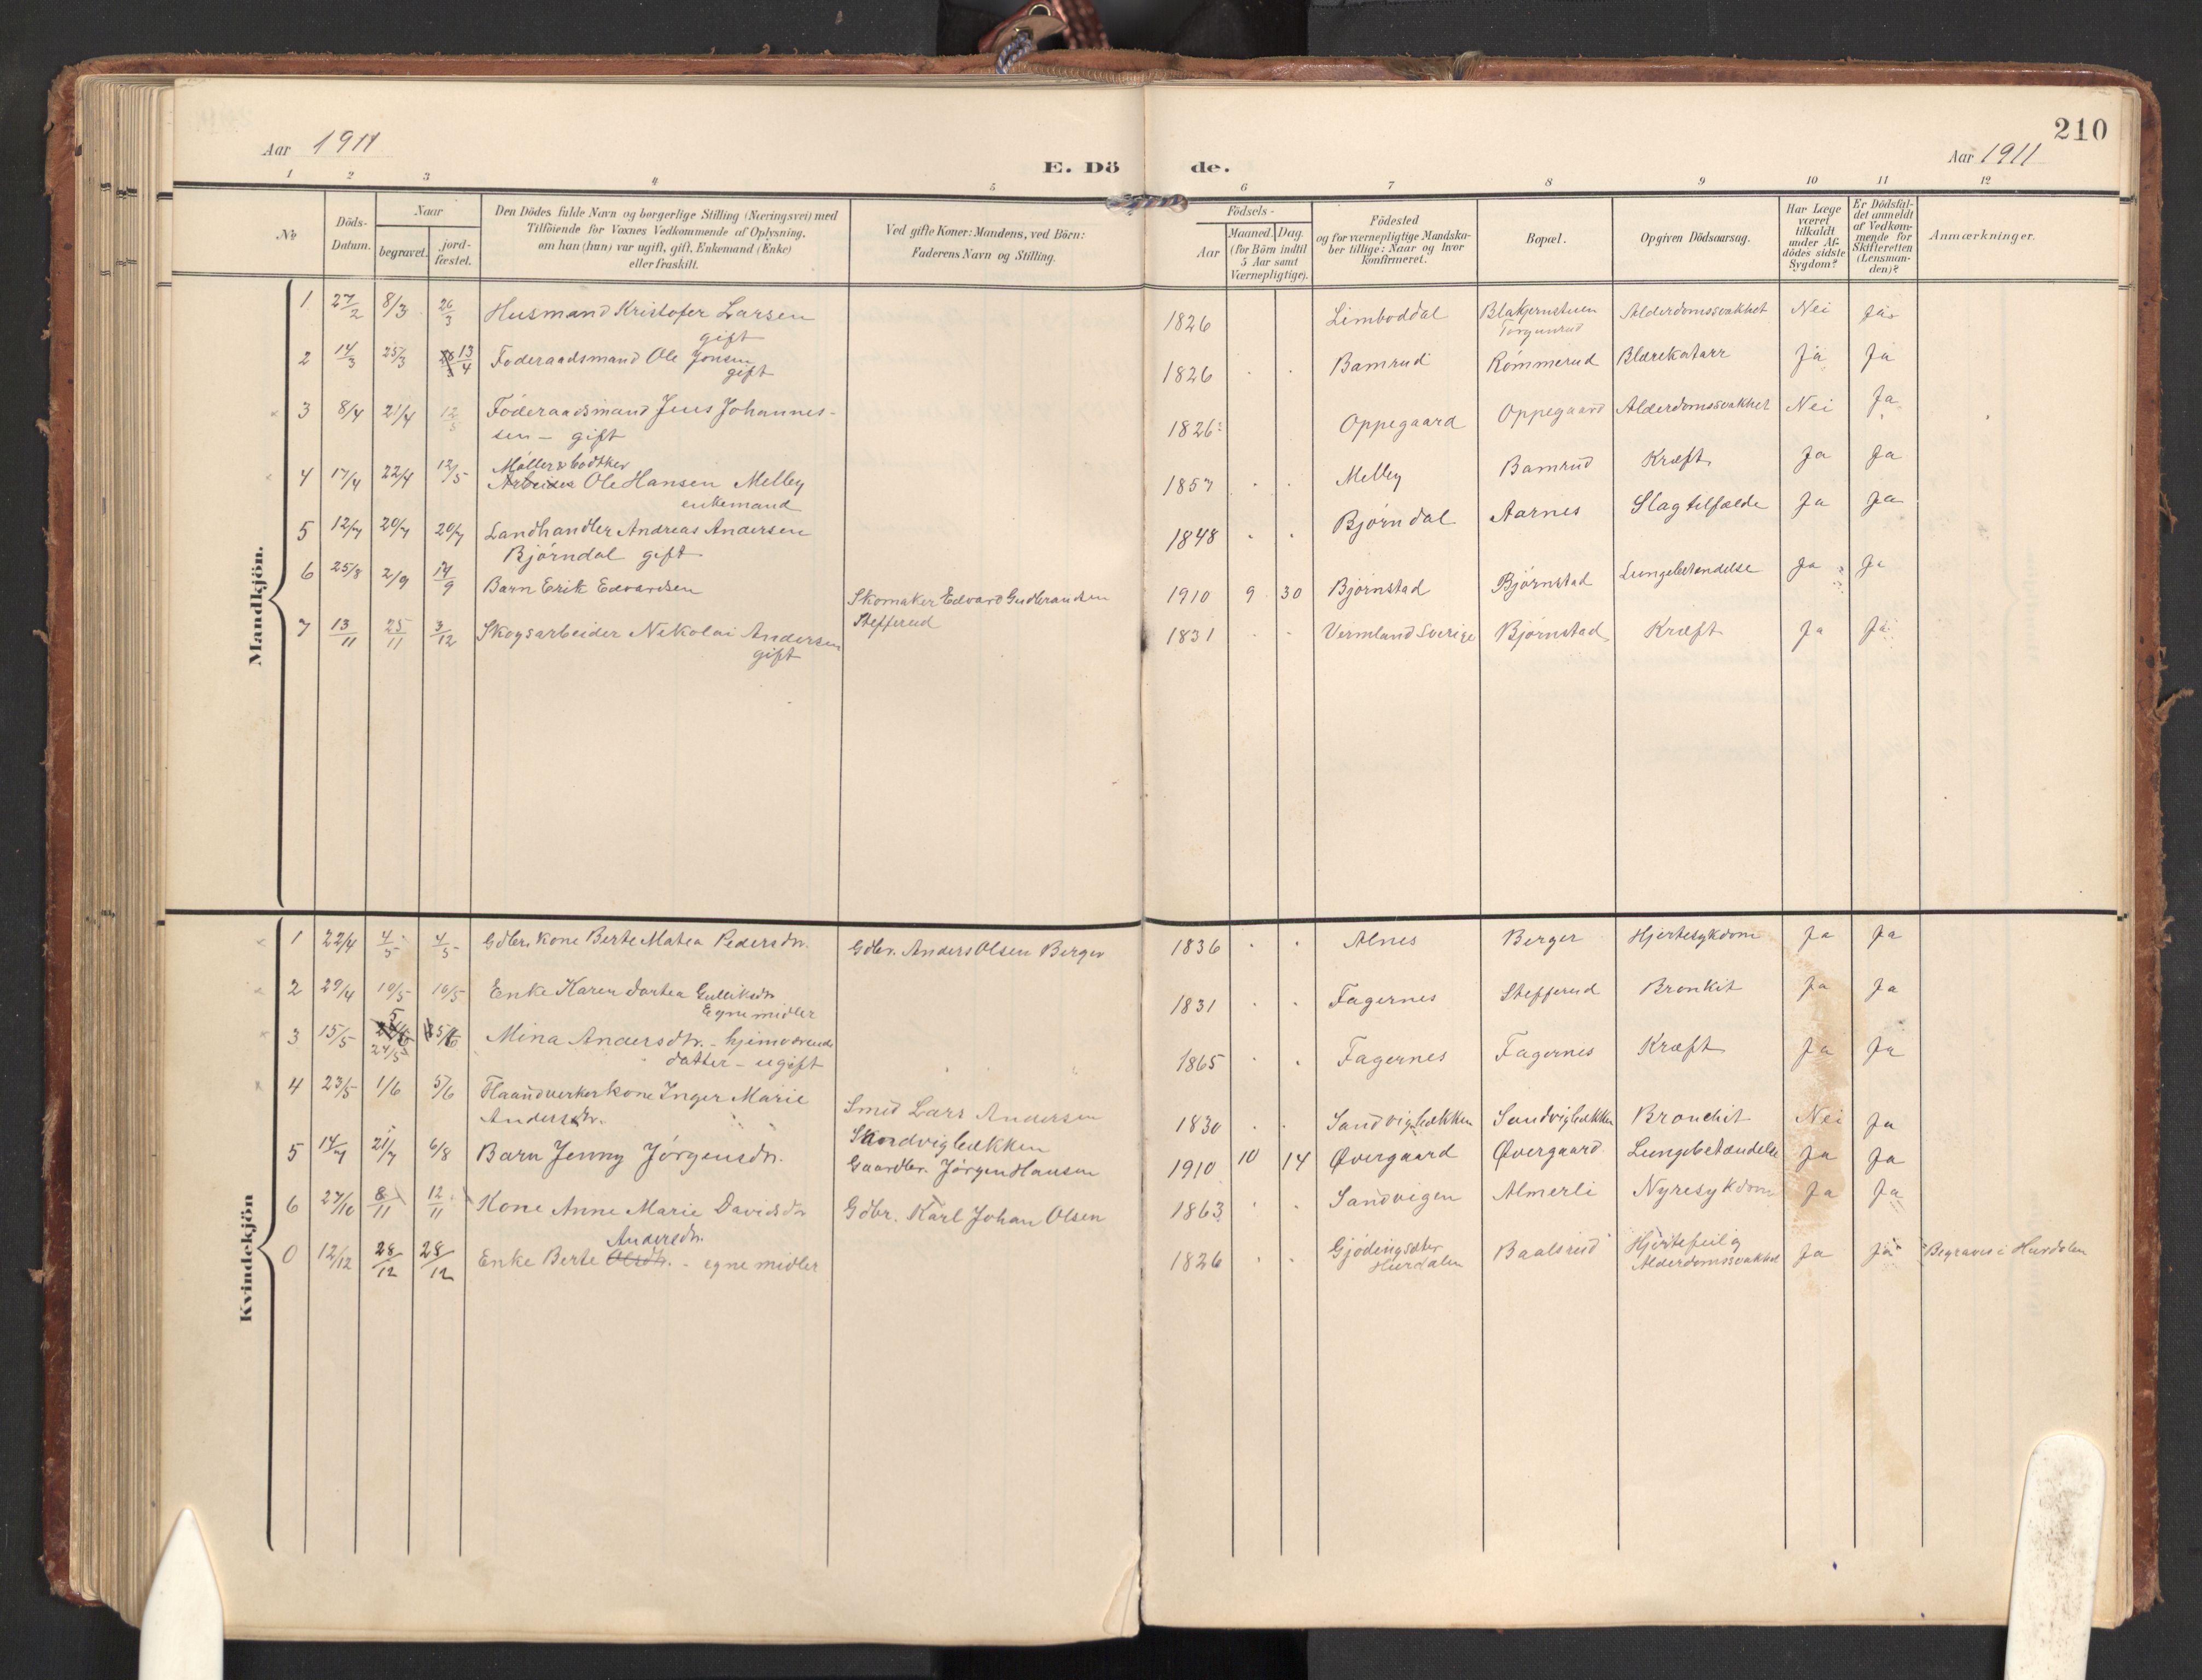 210
Aar 1911
Aar 1911
E. Dö de.
1 2 3 4 5 6 7 8 9 10 11 12
No
Döds-Datum.
Naar
begravet.
jord-fæstet.
Den Dödes fulde Navn og borgerlige Stilling (Næringsvei) med
Tilföiende for Voxnes Vedkommende af Oplysning,
om han (hun) var ugift, gift, Enkemand (Enke)
eller fraskilt.
Ved gifte Koner: Mandens, ved Börn:
Faderens Navn og Stilling.
Födsels-
Aar
Maaned. Dag.
(for Börn indtil
5 Aar samt
Værnepligtige).
Födested
og for værnepligtige Mandska-
ber tillige: Naar og hvor
konfirmeret.
Bopæl.
Opgiven Dödsaarsag.
Har Læge
været
tilkaldt
under Af-
dödes sidste
Sygdom?
Er Dödsfal-
det anmeldt
af Vedkom-
mende for
Skifteretten
(Lensman-
den)?
Anmærkninger.
Mandkjön.
1 27/2 8/3 26/3 Husmand Kristofer Larsen 1826 Limboddal Blakjernstuen Alderdomssvakhet Nei Ja
gift Torgunrud
2 14/3 25/3 13/4 Foderaadsmand Ole Jonsen 1826 Bamrud Kömmerud Blærekatarr Ja Ja
gift
3 8/4 21/4 12/5 Föderaadsmand Jens Johannes- 1826 Oppegaard Oppegaard Alderdomssvakhet Nei Ja
sen - gift
Møller & bødtker
4 17/4 22/4 12/5 Arbeider Ole Hansen Melby 1857 Melby Bamrud Kræft Ja Ja
enkemand
5 12/7 20/7 20/7 Landhandler Andreas Andersen 1848 Bjørndal Aarnes Slagtilfælde Ja Ja
Bjørndal gift
6 25/8 2/9 17/9 Barn Erik Edvardsen Skomaker Edvard Gudbrandsen 1910 9 30 Bjørnstad Bjørnstad Lungebetændelse Ja Ja
Stefferud
7 13/11 25/11 3/12 Skogsarbeider Nikolai Andersen 1831 Vermland Sverige Bjørnstad Kræft Ja Ja
gift
Kvindekjön
1 22/4 4/5 4/5 Gdbr. kone Berte Matea Pedersdtr. Gdbr. Anders Olsen Berger 1836 Alnes Berger Hjertesykdom Ja Ja
2 29/4 10/5 10/5 Enke Karen Dortea Gulliksdtr 1831 Fagernes Stefferud Bronkit Ja Ja
Egne midler
3 15/5 24/5 5/6 Mina Andersdtr. - hjemværende 1865 Fagernes Fagernes Kræft Ja Ja
datter - ugift
4 23/5 1/6 5/6 Haandverkerkone Inger Marie Smed Lars Andersen 1830 Sandvigbækken Sandvigbækken Bronchit Nei Ja
Andersdtr. Sandvigbækken
5 14/7 21/7 6/8 Barn Jenny Jørgensdtr. Gaardbr. Jørgen Hansen 1910 10 14 Øvergaard Øvergaard Lungebetændelse Ja Ja
6 27/10 8/11 12/11 Kone Anne Marie Davidsdtr Gdbr. Karl Johan Olsen 1863 Sandvigen Almerli Nyresykdom Ja Ja
Andersdtr.
0 12/12 28/12 28/12 Enke Berte Olsdtr. - egne midler 1826 Gjödingsæter Baalsrud Hjertefeil og Ja Ja Begraves i Hurdalen
Hurdalen Alderdomssvakhet